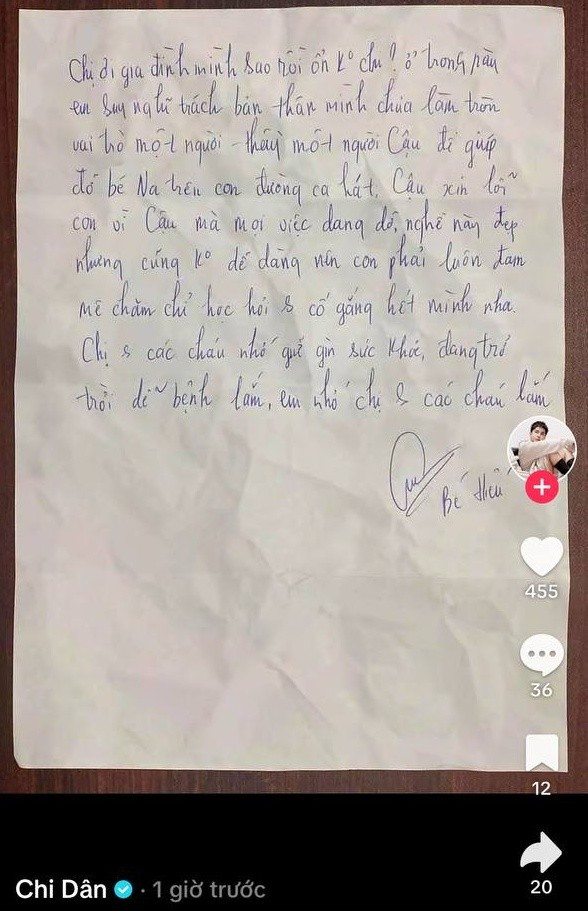 Chị ơi gia đình mình sao rồi ổn kº chị? ở trong này
em suy nghĩ trách bản thân mình chưa làm tròn
vai trò một người thầy một người Cậu để giúp
đỡ bé Na trên con đường ca hát. Cậu xin lỗi
con vì Cậu mà mọi việc dang dở, nghề này đẹp
nhưng cũng kº dễ dàng nên con phải luôn đam
mê chăm chỉ học hỏi & cố gắng hết mình nha.
Chị & các cháu nhớ giữ gìn sức khỏe, đang trở
trời dễ bệnh lắm, em nhớ chị & các cháu lắm
Bé Hiếu
455
36
12
20
Chi Dân · 1 giờ trước